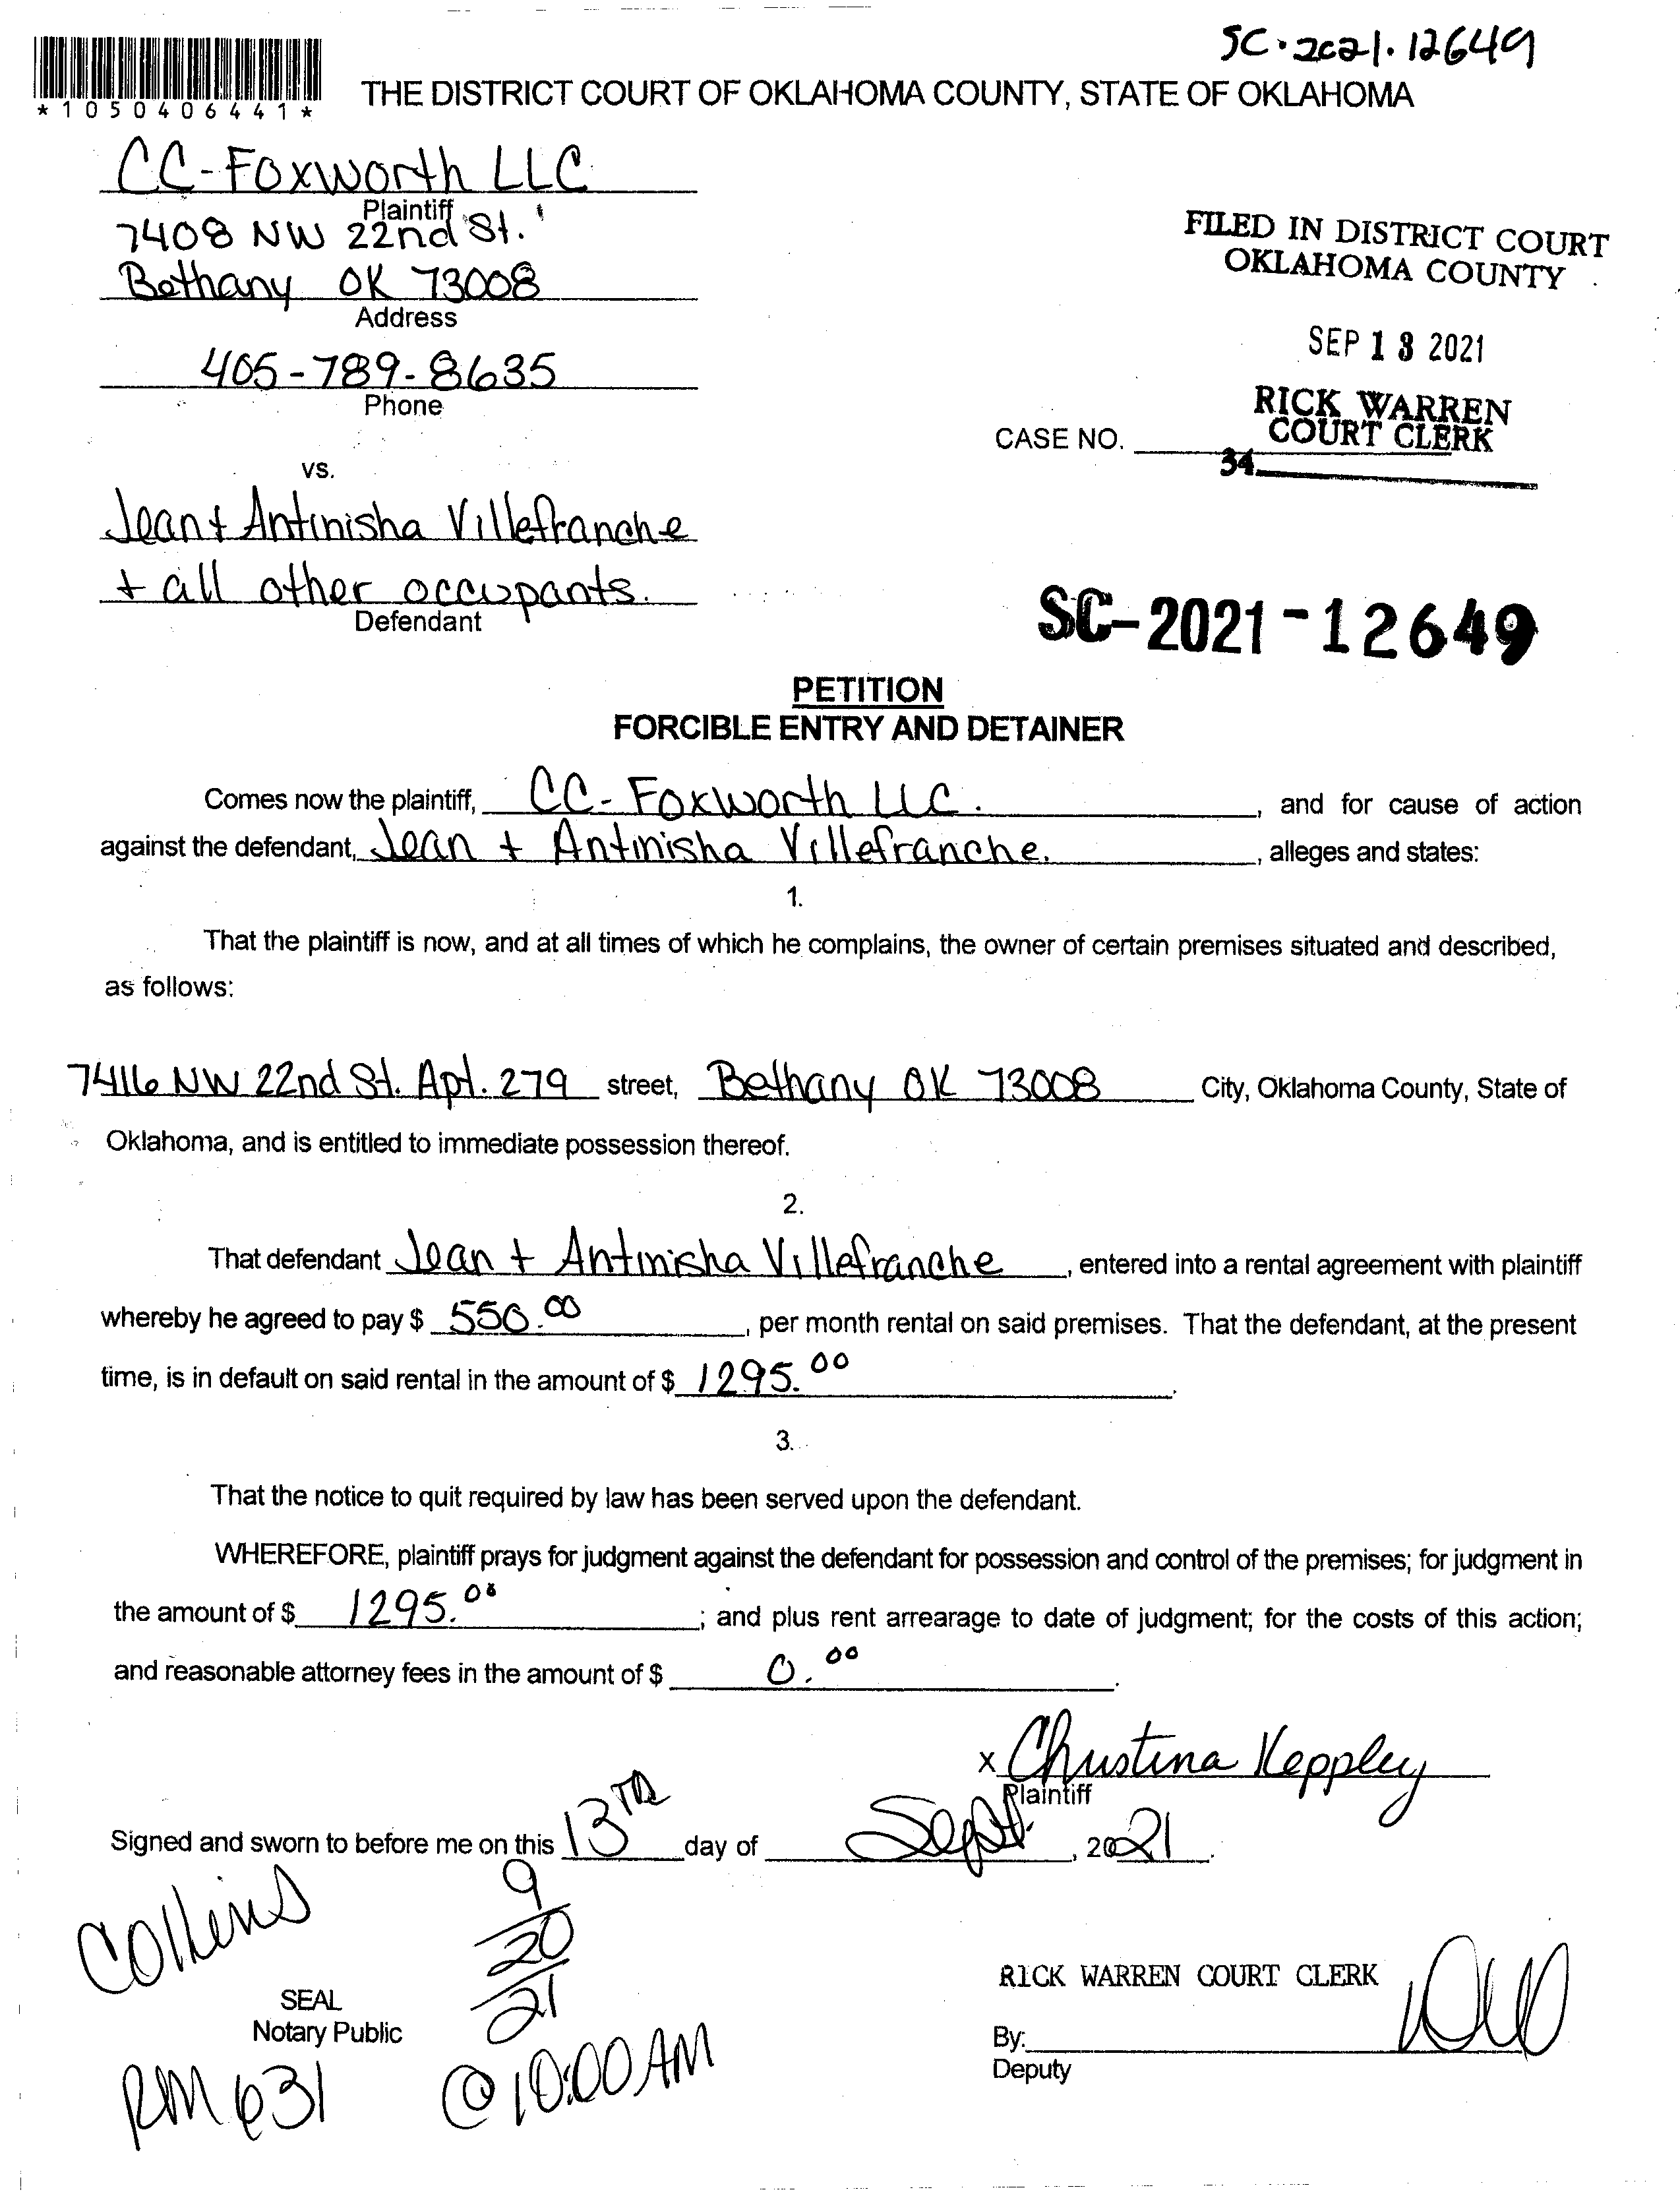 SC·2021·12649
*1050406441*
THE DISTRICT COURT OF OKLAHOMA COUNTY, STATE OF OKLAHOMA
CC-Foxworth LLC
Plaintiff
7408 NW 22nd St.
Bethany OK 73008
Address
405-789-8635
Phone
FILED IN DISTRICT COURT
OKLAHOMA COUNTY
SEP 13 2021
RICK WARREN
COURT CLERK
CASE NO.
34
vs.
Jean + Antinisha Villefranche
+ all other occupants.
Defendant
SC-2021-12649
PETITION
FORCIBLE ENTRY AND DETAINER
Comes now the plaintiff, CC-Foxworth LLC. , and for cause of action
against the defendant, Jean + Antinisha Villefranche. , alleges and states:
1.
That the plaintiff is now, and at all times of which he complains, the owner of certain premises situated and described,
as follows:
7416 NW 22nd St. Apt. 279 street, Bethany OK 73008 City, Oklahoma County, State of
Oklahoma, and is entitled to immediate possession thereof.
2.
That defendant Jean + Antinisha Villefranche , entered into a rental agreement with plaintiff
whereby he agreed to pay $ 550.00 , per month rental on said premises. That the defendant, at the present
time, is in default on said rental in the amount of $ 1295.00 .
3.
That the notice to quit required by law has been served upon the defendant.
WHEREFORE, plaintiff prays for judgment against the defendant for possession and control of the premises; for judgment in
the amount of $ 1295.00 ; and plus rent arrearage to date of judgment; for the costs of this action;
and reasonable attorney fees in the amount of $ 0.00 .
x Christina Keppley
Plaintiff
Signed and sworn to before me on this 13TH day of Sept. , 2021 .
Collins
9/20/21
SEAL
Notary Public
RM 631
@ 10:00 AM
RICK WARREN COURT CLERK
By:
Deputy